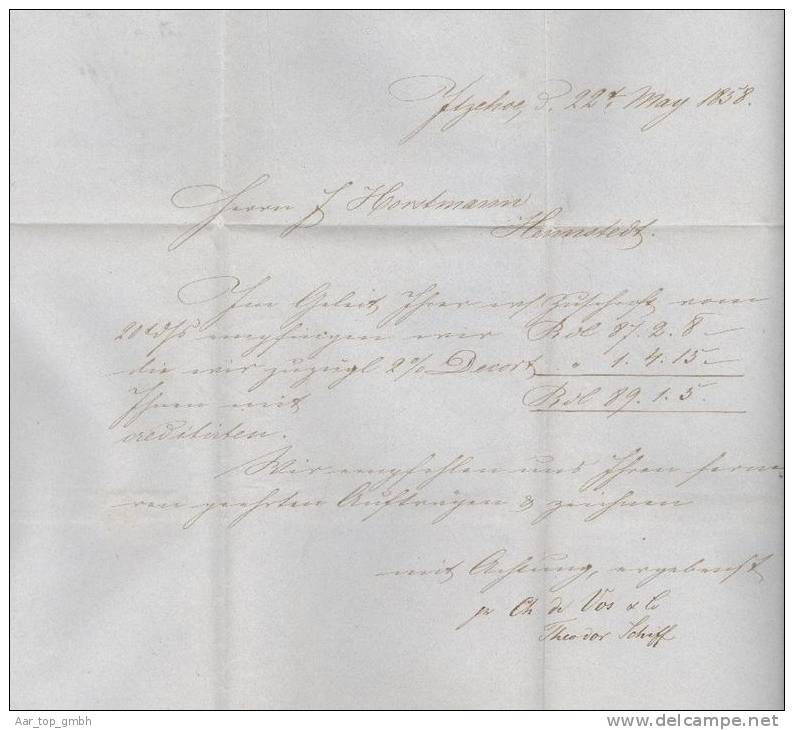 Itzehoe, d. 22t May 1858.
Herrn J Horstmann
Hennstedt.
Im Geleit Ihrer Zuschrift vom
20 ds empfingen wir Rdl 87. 2. 8
die wir zuzügl 2% Decort " 1. 4. 15
Ihnen mit Rdl 89. 1. 5.
creditirten.
Wir empfehlen uns Ihren ferne
ren geehrten Aufträgen & zeichnen
mit Achtung, ergebenst
pr Ch de Vos & Co
Theodor Schiff
Aar_top_gmbh
www.delcampe.net